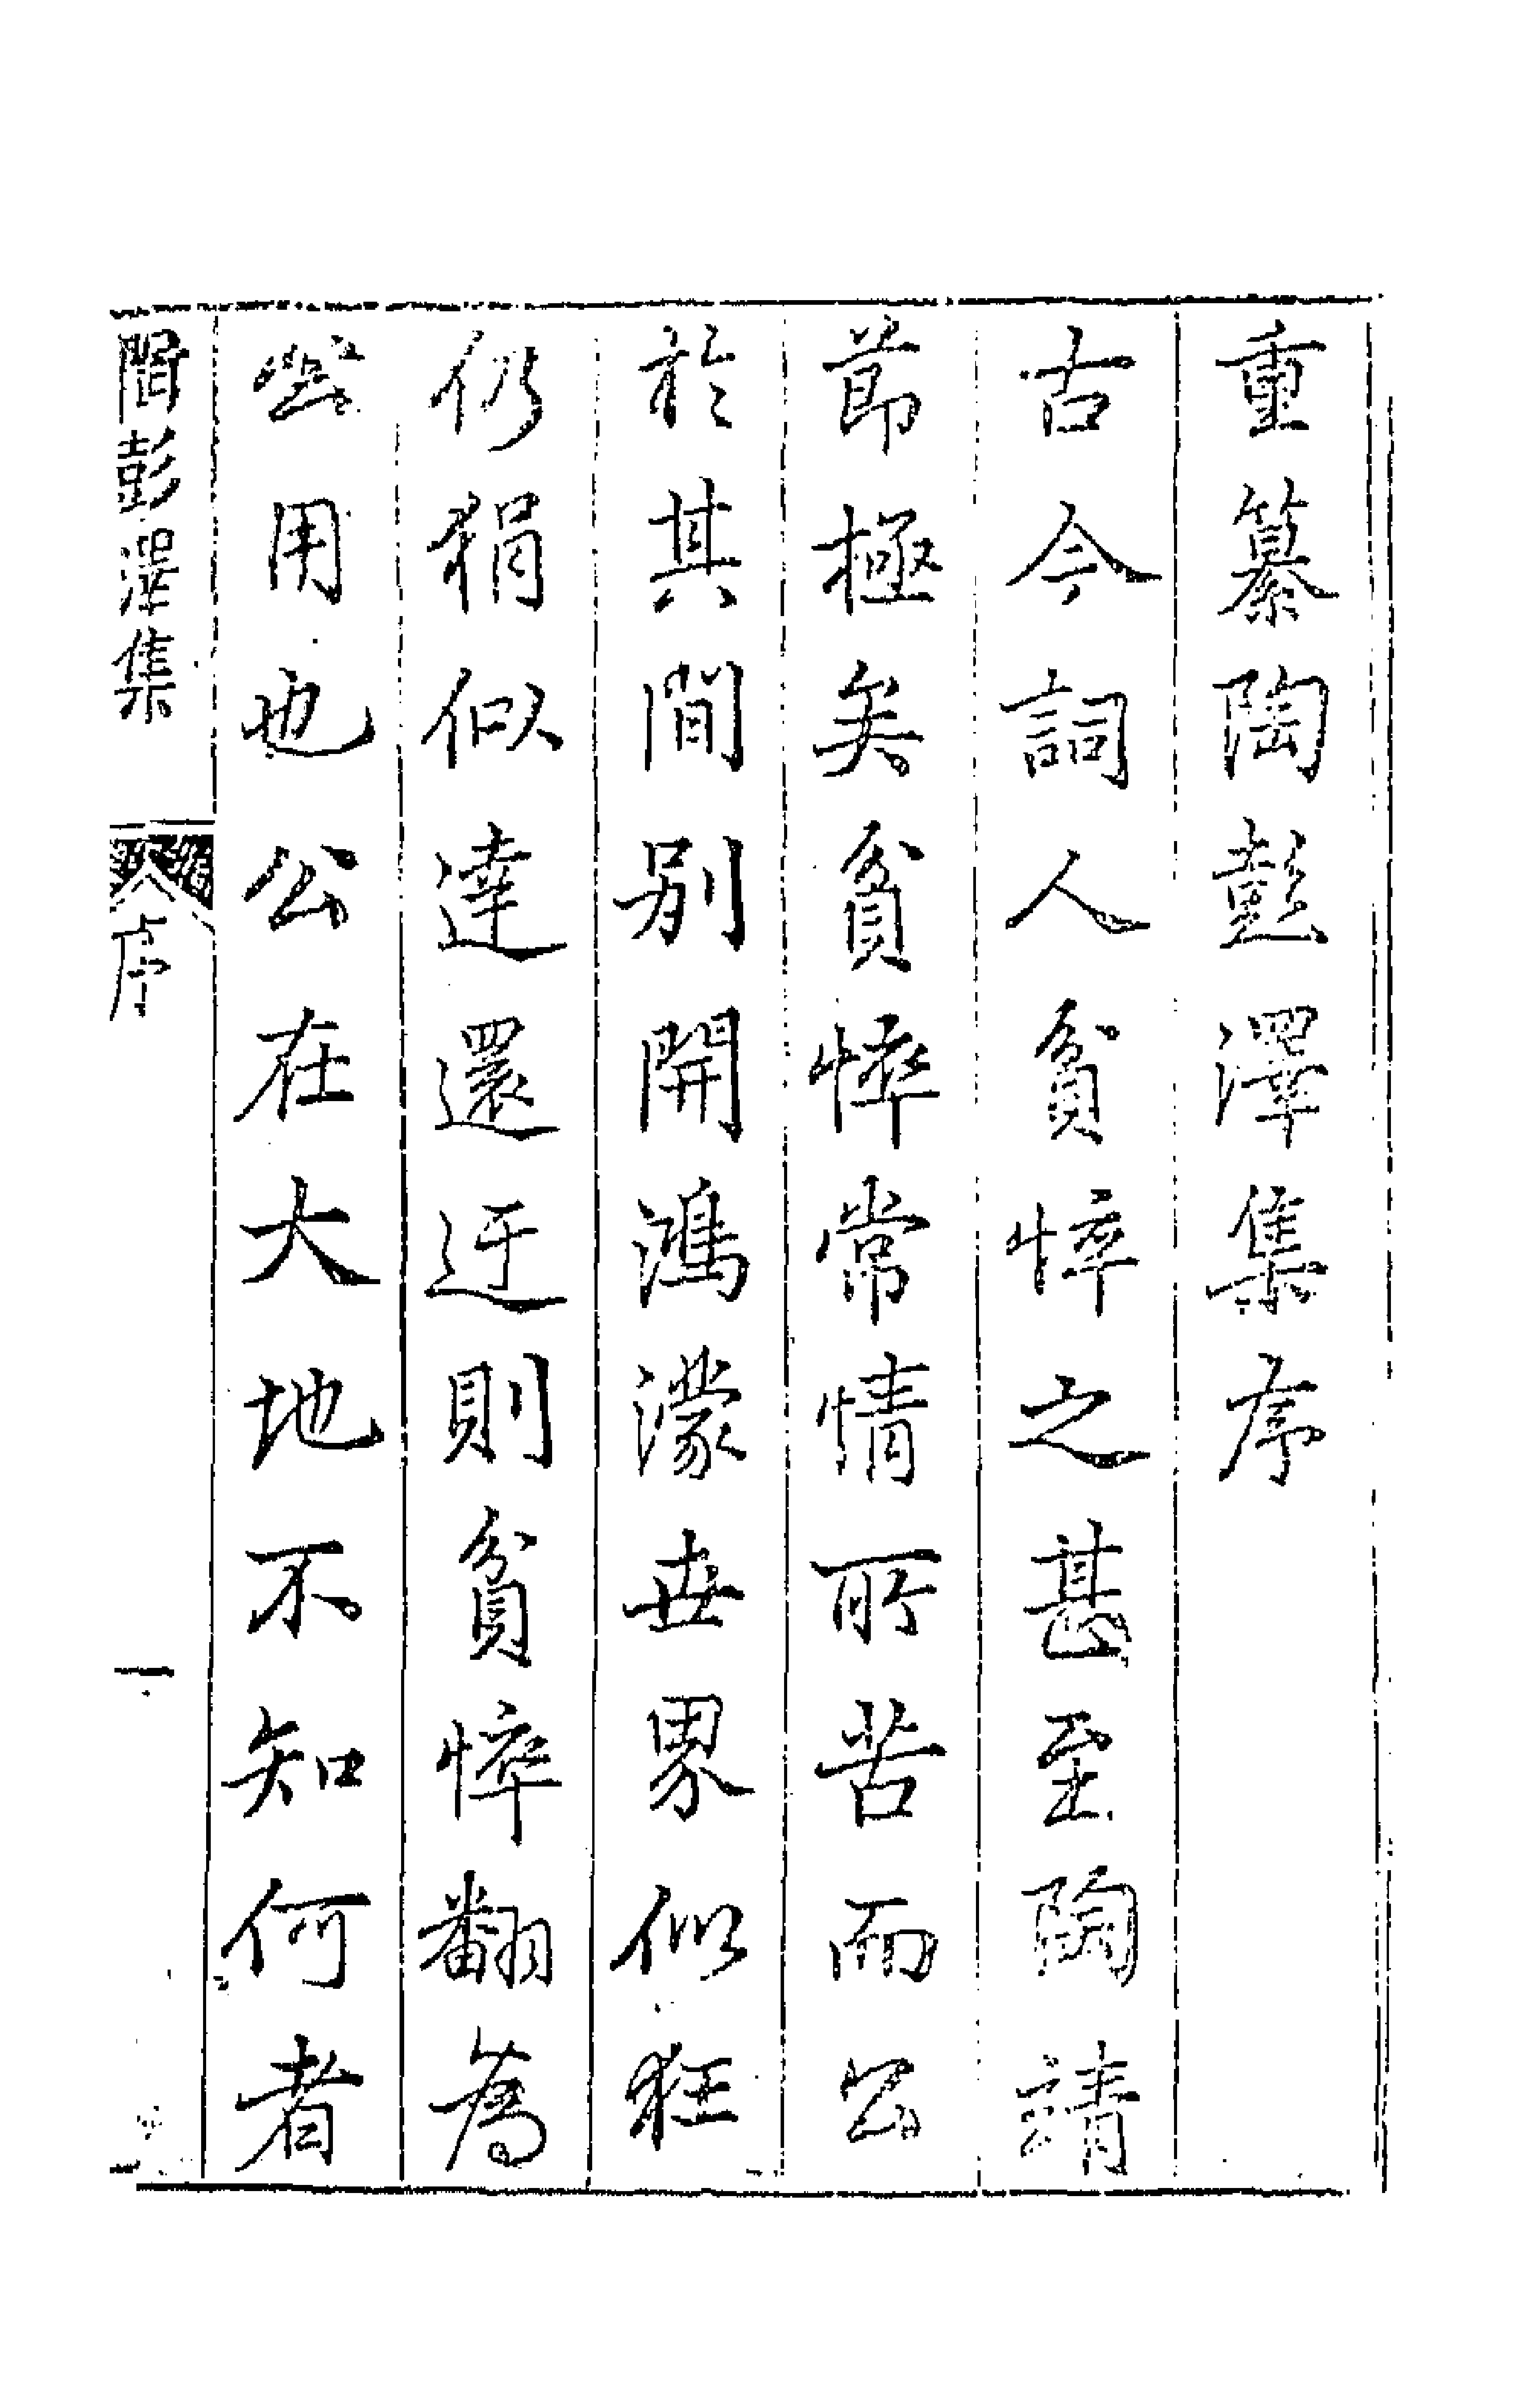 重纂陶彭澤集序
古今詞人貧悴之甚至陶靖
節極矣貧悴常情所苦而公
於其間別開鴻濛世界似狂
仍狷似達還迂則貧悴翻為
公用也公在大地不知何者
陶彭澤集 序 一